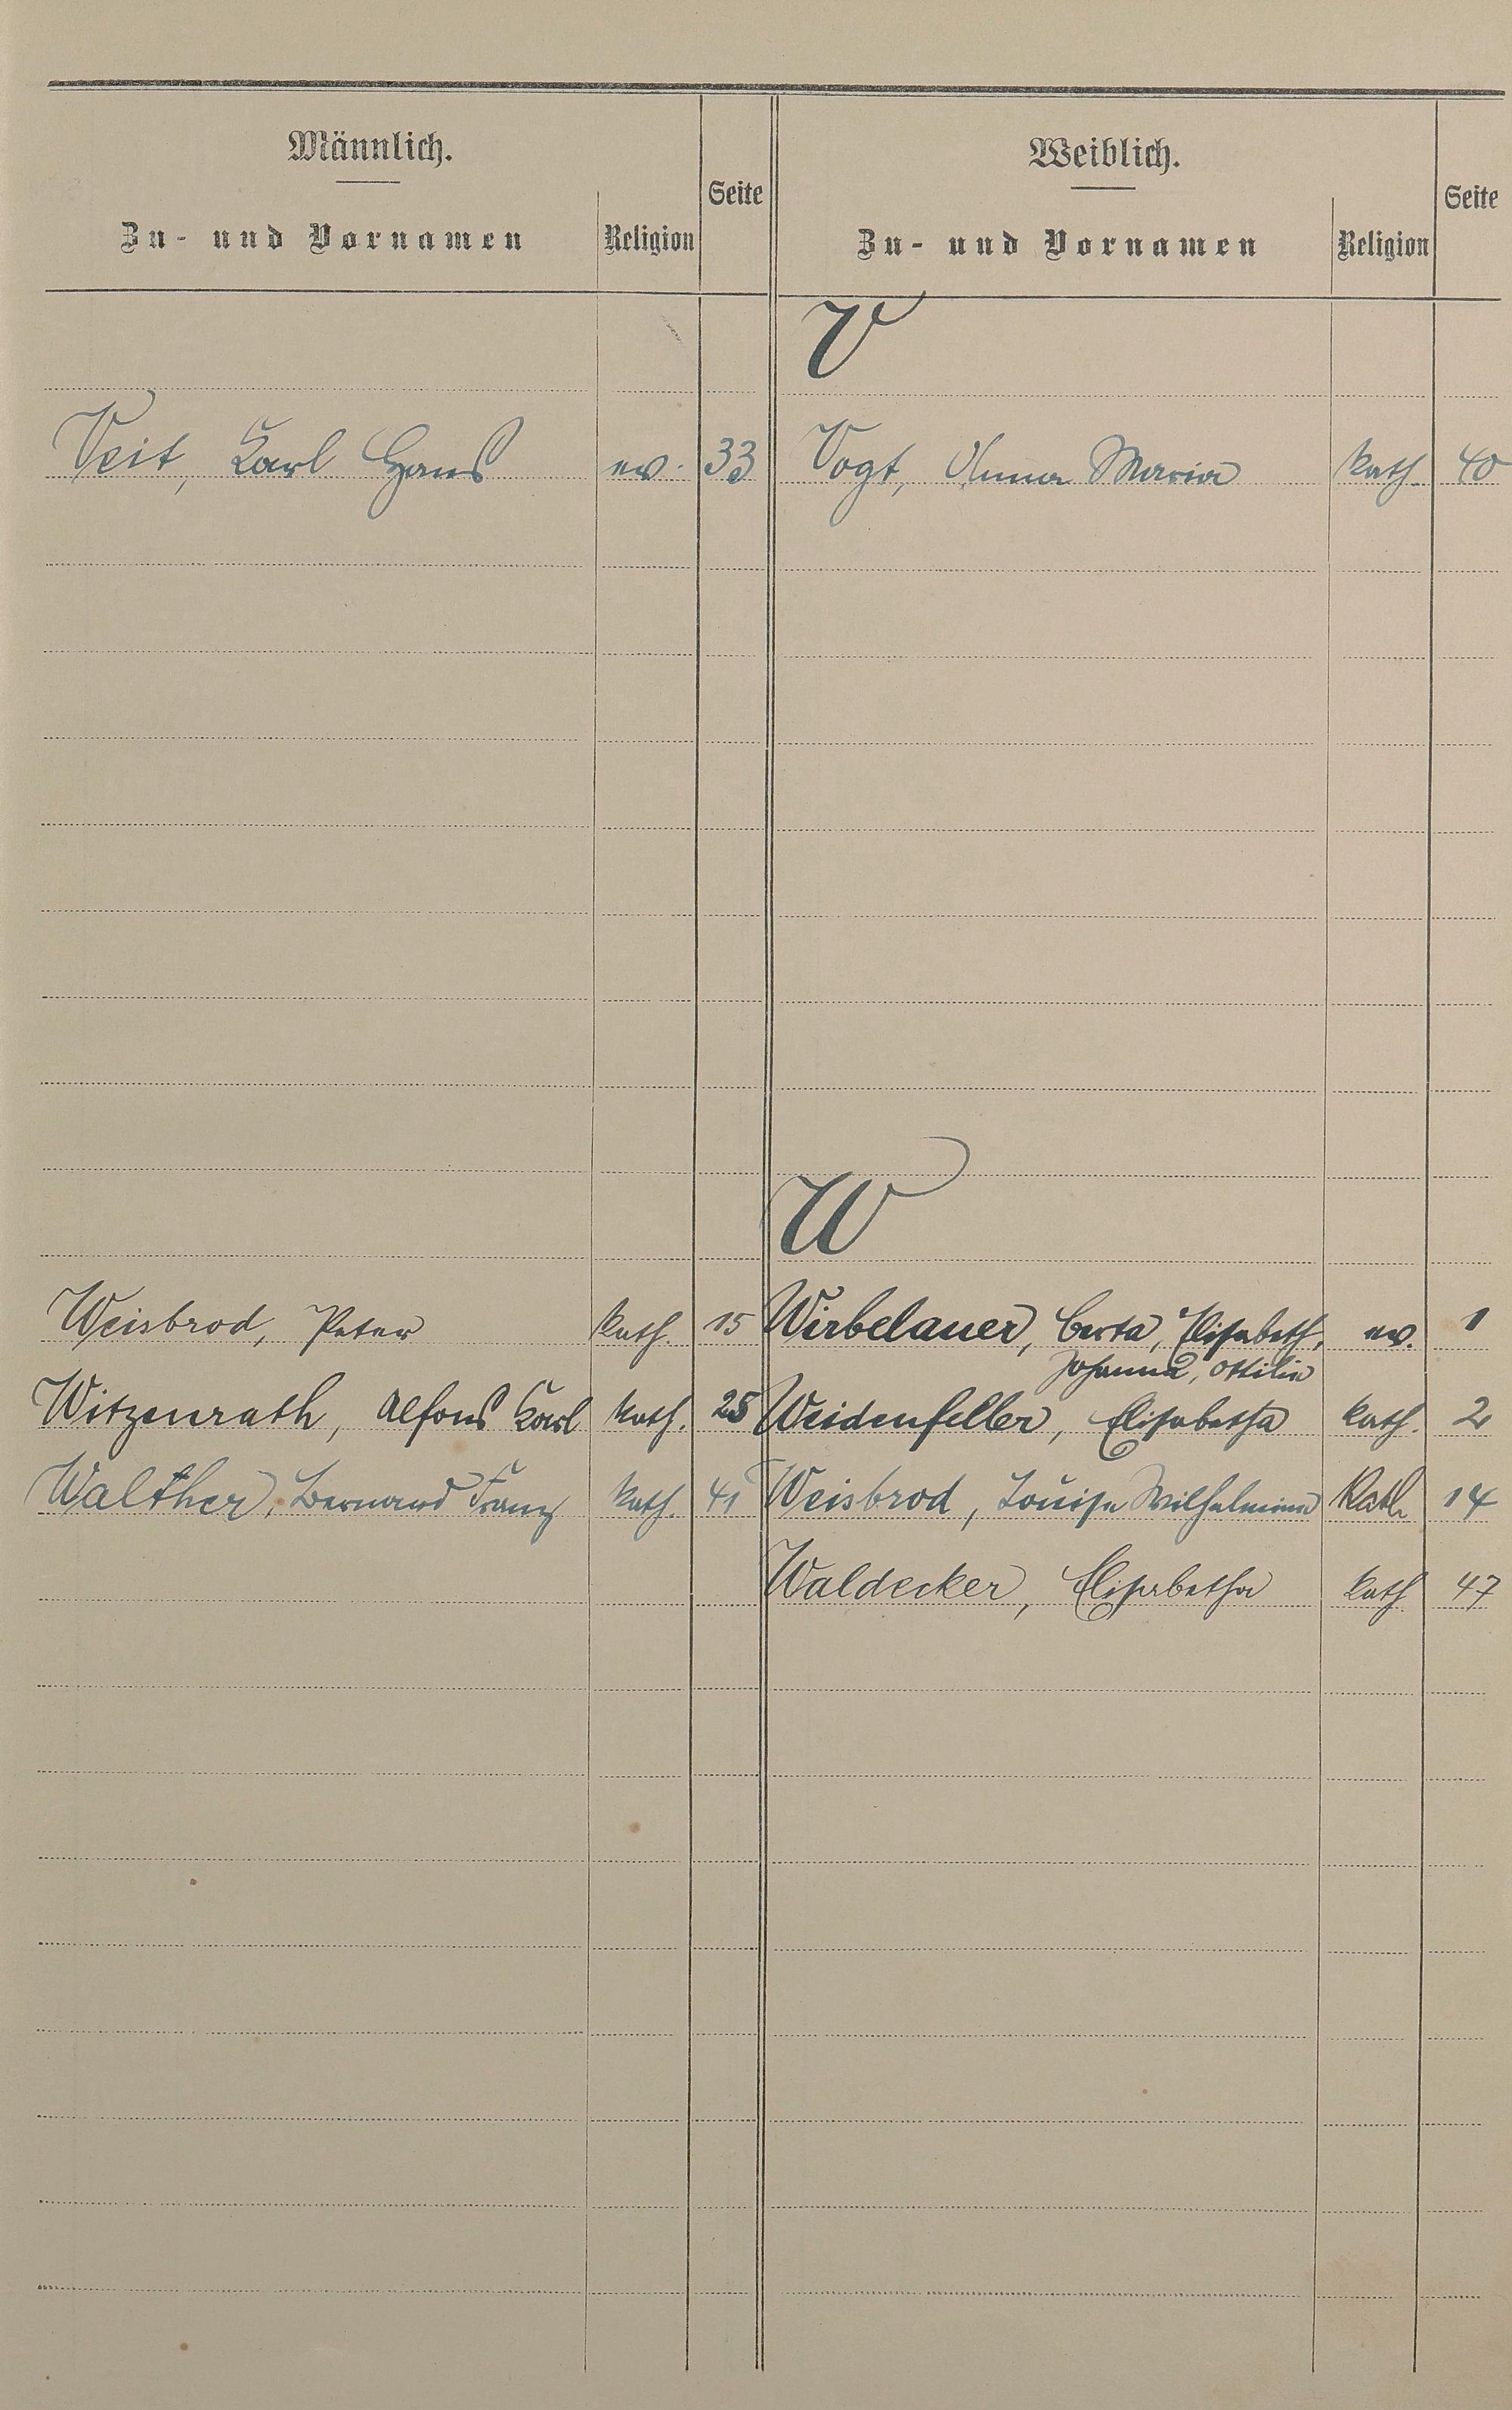 Männlich.
Zu- und Vornamen
Religion
Seite
Weiblich.
Zu- und Vornamen
Religion
Seite
V
Veit, Karl Hans ev. 33
Vogt, Anna Maria kath. 40
W
Weisbrod, Peter kath. 15
Wirbelauer, Berta, Elisabeth, ev. 1
Johanna, Ottilie
Witzenrath, Alfons Karl kath. 25
Weidenfeller, Elisabetha kath. 2
Walther, Bernard Franz kath. 41
Weisbrod, Louise Wilhelmine Kath 14
Waldecker, Elisabetha kath 47